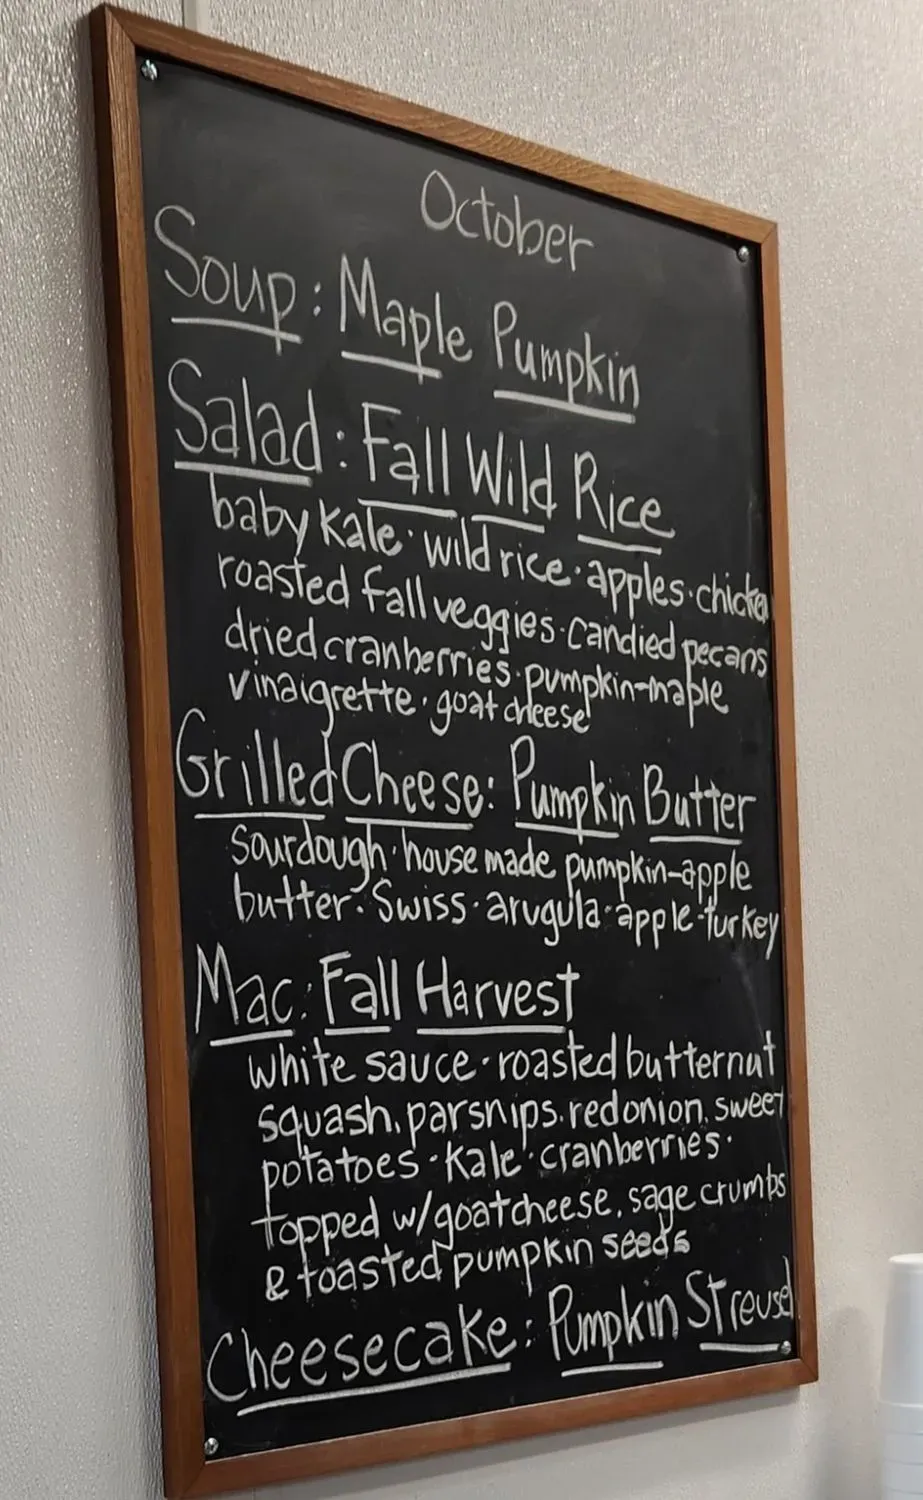 October
Soup: Maple Pumpkin
Salad: Fall Wild Rice
baby kale · wild rice · apples · chicken
roasted fall veggies · candied pecans
dried cranberries · pumpkin-maple
vinaigrette · goat cheese
Grilled Cheese: Pumpkin Butter
sourdough · house made pumpkin-apple
butter · Swiss · arugula · apple · turkey
Mac: Fall Harvest
white sauce · roasted butternut
squash, parsnips, red onion, sweet
potatoes · kale · cranberries ·
topped w/ goat cheese, sage crumbs
& toasted pumpkin seeds
Cheesecake: Pumpkin Streusel